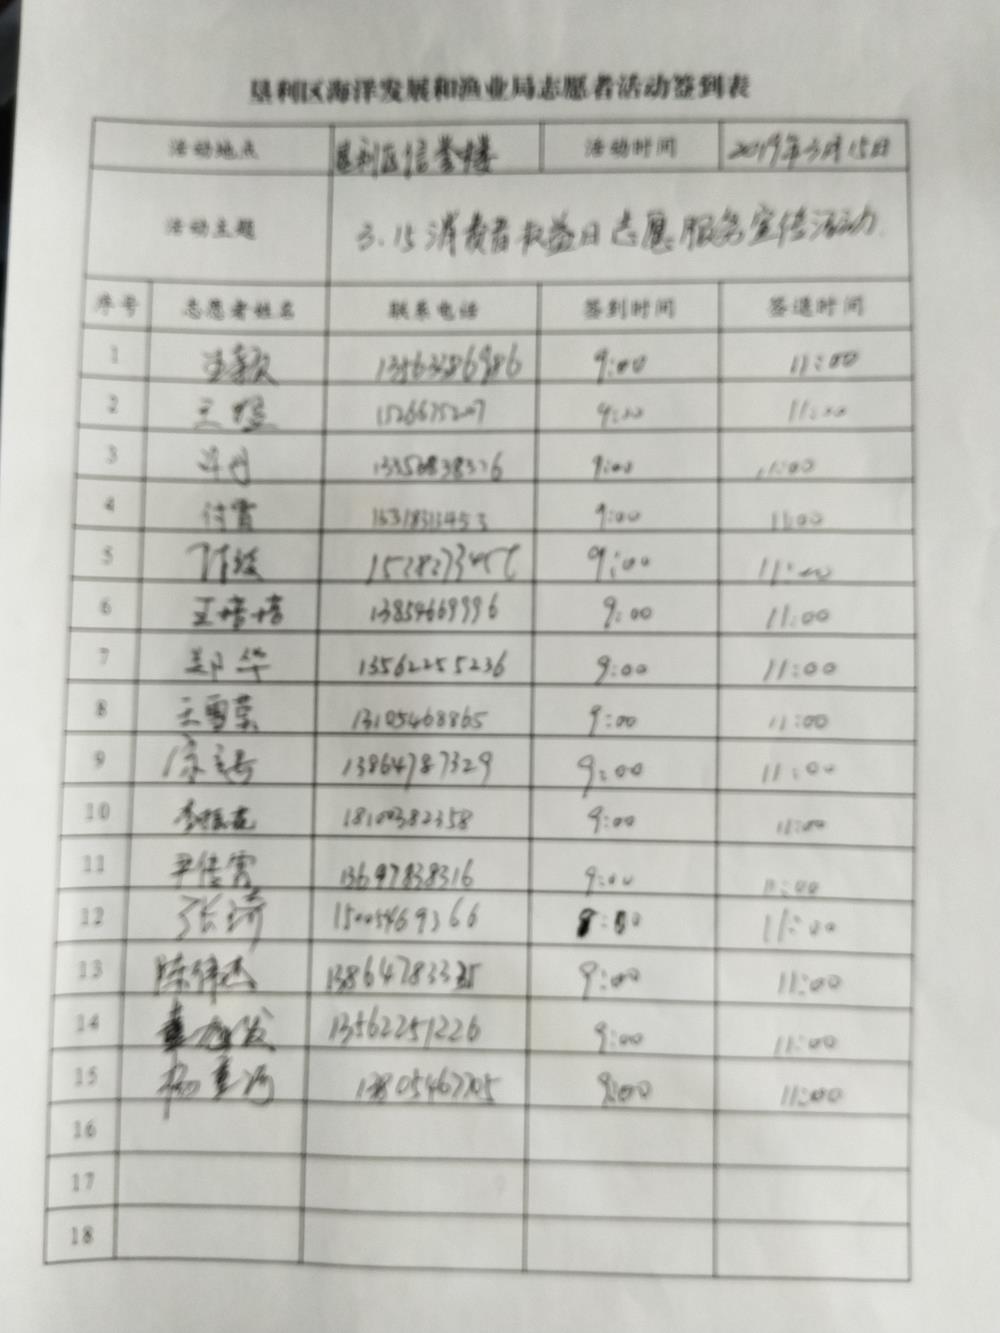 垦利区海洋发展和渔业局志愿者活动签到表
活动地点 垦利区信誉楼 活动时间 2019年3月15日
活动主题 3.15消费者权益日志愿服务宣传活动
序号 志愿者姓名 联系电话 签到时间 签退时间
1 13563386986 9:00 11:00
2 王 9:00 11:00
3 9:00 11:00
4 付霄 9:00 11:00
5 9:00 11:00
6 王培培 13854669996 9:00 11:00
7 郑华 13562255236 9:00 11:00
8 王雪荣 13105468865 9:00 11:00
9 13864787329 9:00 11:00
10 18100382358 9:00 11:00
11 尹倩雯 13697838316 9:00 11:00
12 张琦 15005469366 11:00
13 陈伟杰 9:00 11:00
14 13562251226 9:00 11:00
15 杨 9:00 11:00
16
17
18